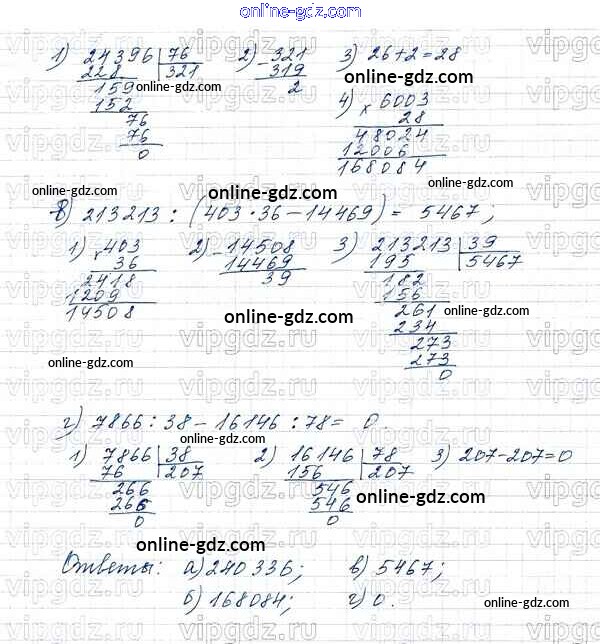 online-gdz.com
1) 24396 | 76 2) - 321 3) 26+2=28
228 321 319
159 2 online-gdz.com
152 4) × 6003
76 28
76 48024
0 12006
168084
online-gdz.com
online-gdz.com
online-gdz.com
в) 213213 : (403·36-14469) = 5467;
1) × 403 2) - 14508 3) 213213 | 39
36 14469 195 5467
2418 39 182
1209 156
14508 261
online-gdz.com 234
273
273
0
online-gdz.com
online-gdz.com
г) 7866 : 38 - 16146 : 78 = 0.
online-gdz.com
1) 7866 | 38 2) 16146 | 78 3) 207-207=0
76 207 156 207
266 546
266 546
0 0
online-gdz.com
online-gdz.com
Ответы: а) 240336; в) 5467;
б) 168084; г) 0.
online-gdz.com
online-gdz.com
vipgdz.ru